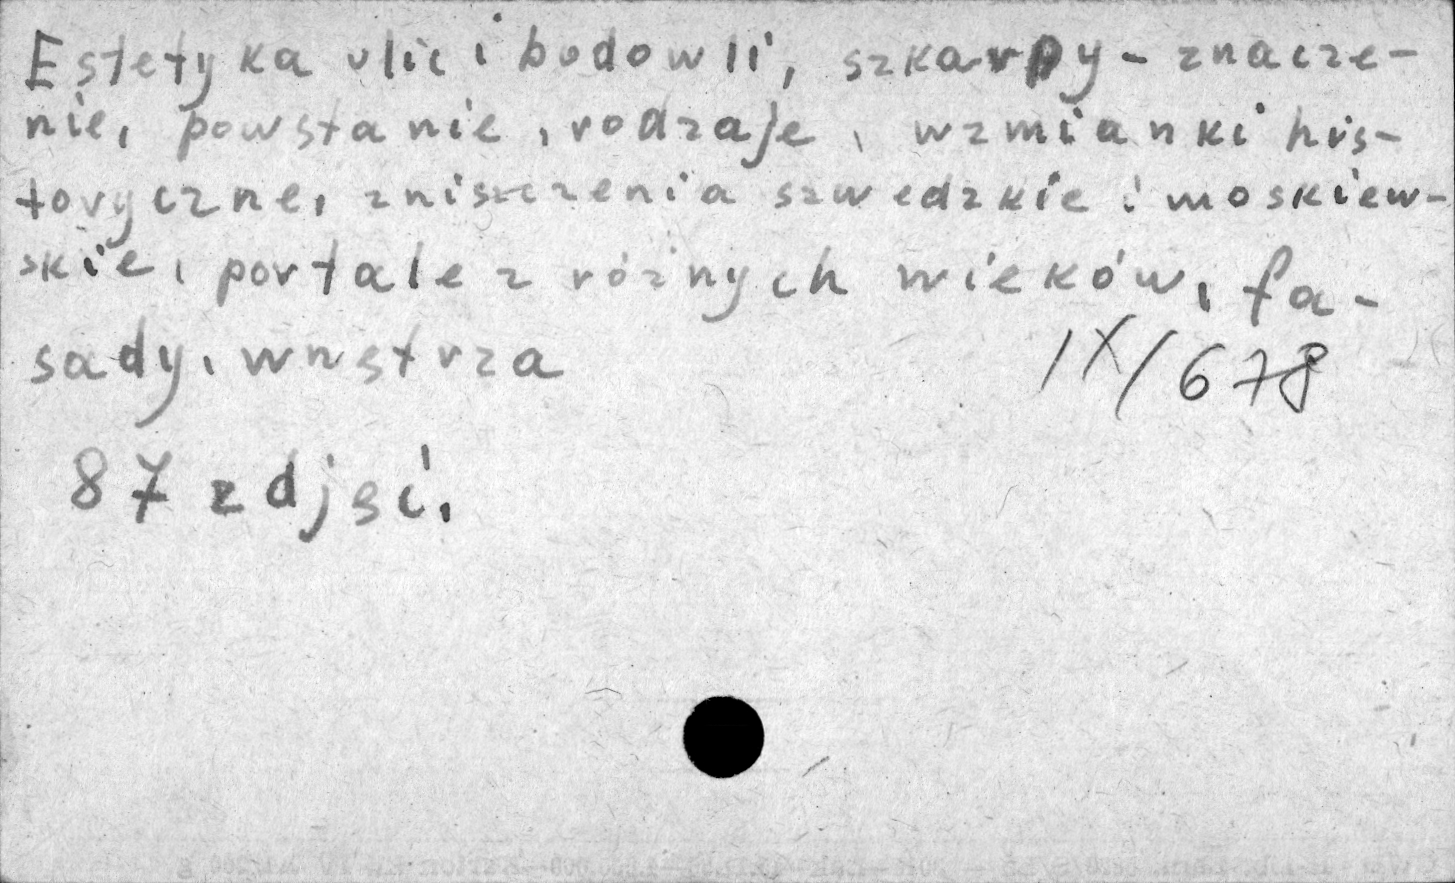 Estetyka ulic i budowli, szkarpy - znacze-
nie, powstanie, rodzaje, wzmianki his-
toryczne, zniszczenia szwedzkie i moskiew-
skie, portale z różnych wieków, fa-
sady, wnętrza
IX/678
87 zdjęć.